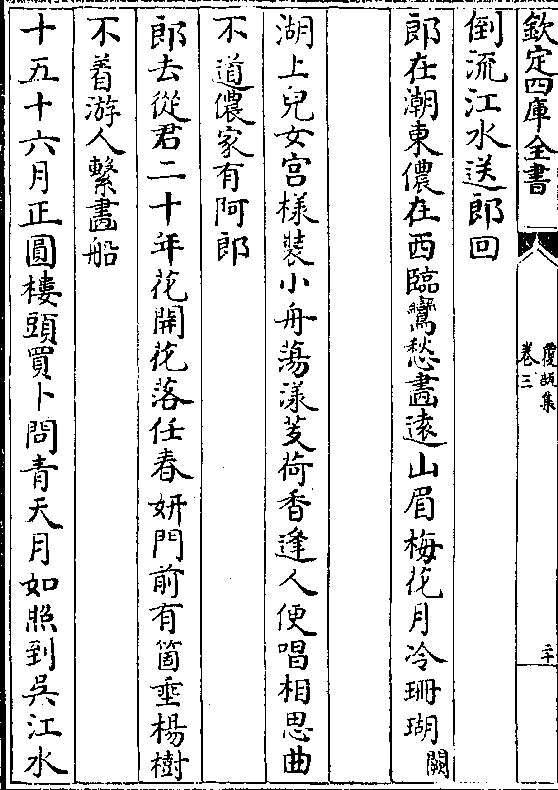 欽定四庫全書
覆瓿集
卷三
二十
倒流江水送郎回
郎在潮東儂在西臨鸞愁畫遠山眉梅花月冷珊瑚闕
湖上兒女宫樣裝小舟蕩漾芰荷香逢人便唱相思曲
不道儂家有阿郎
郎去從君二十年花開花落任春妍門前有箇垂楊樹
不着游人繫畫船
十五十六月正圓樓頭買卜問青天月如照到吳江水